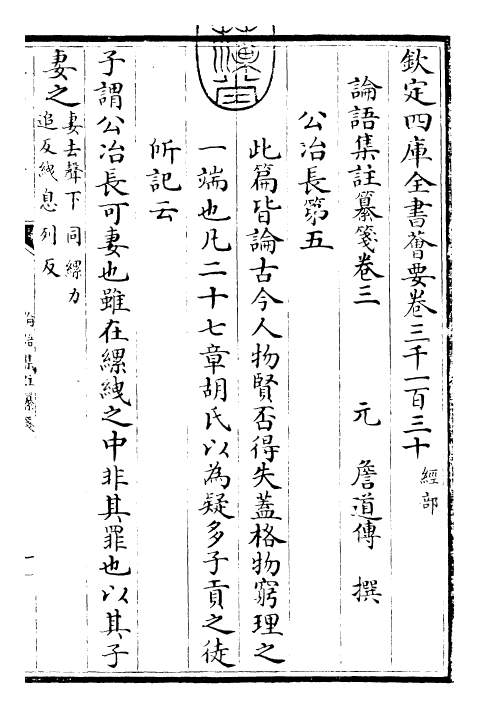 欽定四庫全書薈要卷三千一百三十 經部
論語集註纂箋卷三 元 詹道傳 撰
公冶長第五
此篇皆論古今人物賢否得失蓋格物窮理之
一端也凡二十七章胡氏以為疑多子貢之徒
所記云
子謂公冶長可妻也雖在縲絏之中非其罪也以其子
妻之 妻去聲下同縲力
追反絏息列反
論語集註纂箋
一